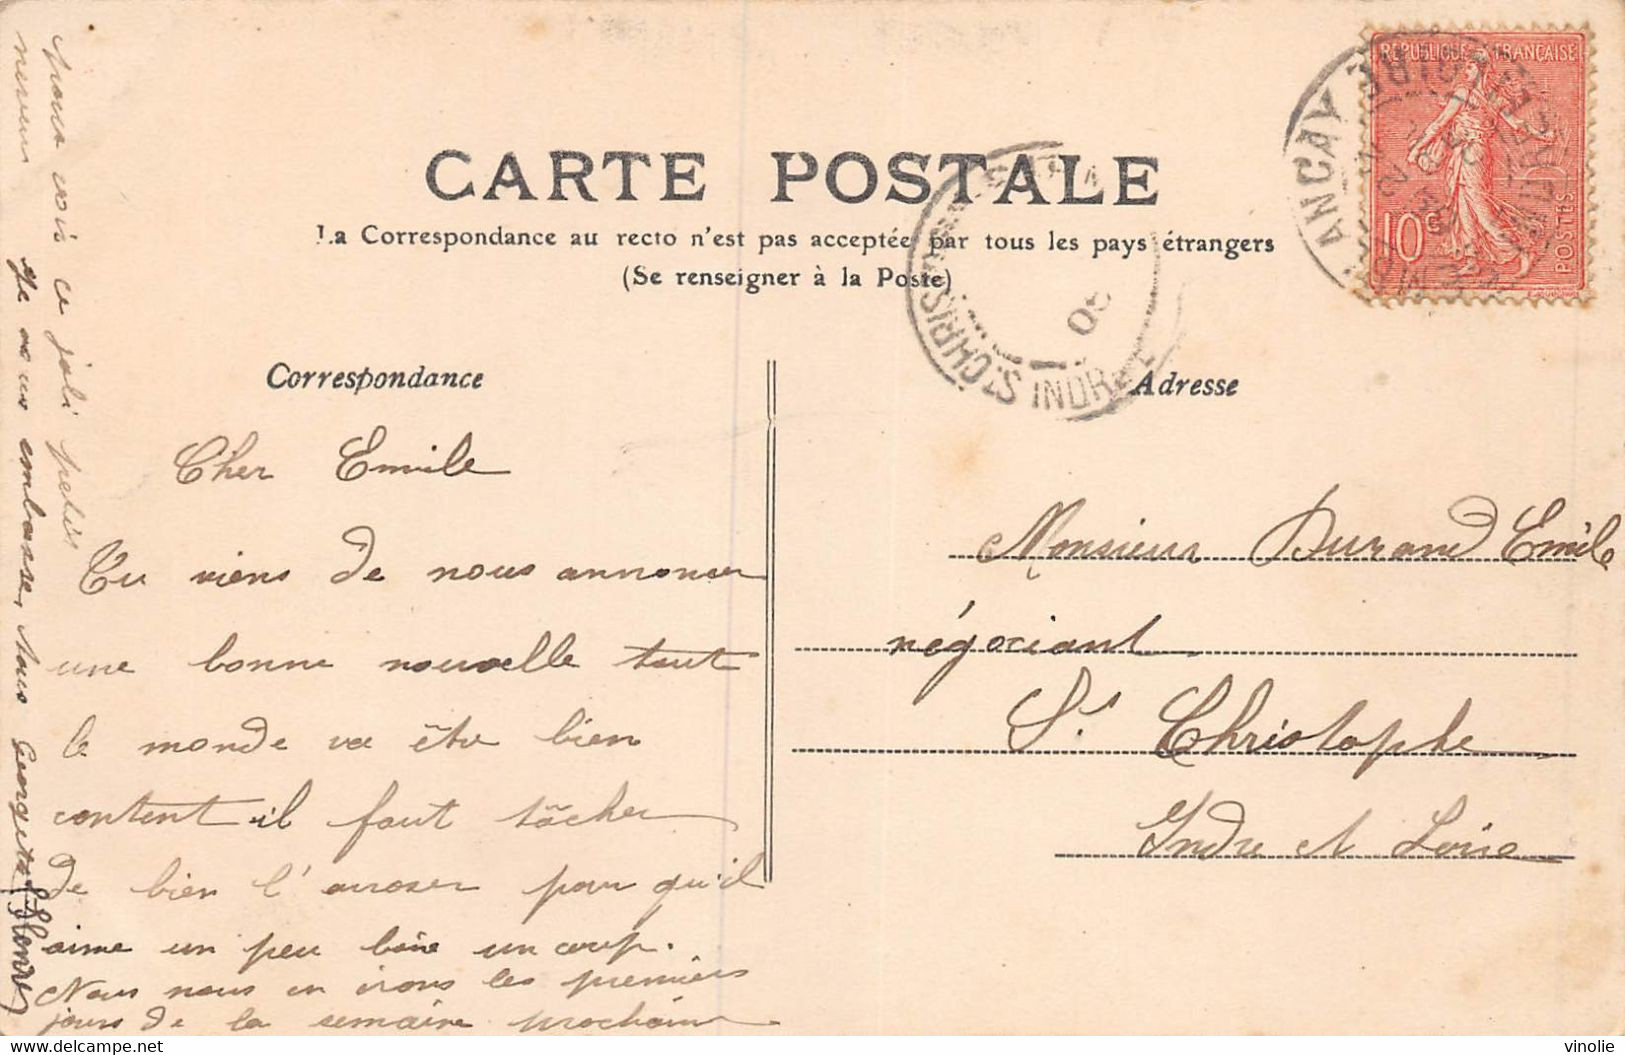 CARTE POSTALE
La Correspondance au recto n'est pas acceptée par tous les pays étrangers
(Se renseigner à la Poste)
REPUBLIQUE FRANÇAISE
10c
POSTES
ANCAY
ST CHRIS
INDRE
08
Correspondance
Adresse
Cher Emile
Tu viens de nous annoncer
une bonne nouvelle tout
le monde va être bien
content il faut tâcher
de bien l'arroser pour qu'il
aime un peu boire un coup.
Nous nous en irons les premiers
jours de la semaine prochaine
pour voir ce joli petit
neveux
Je vous embrasse, tous Georgette
Monsieur Durand Emile
négociant
St Christophe
Indre et Loire
vinolie
delcampe.net